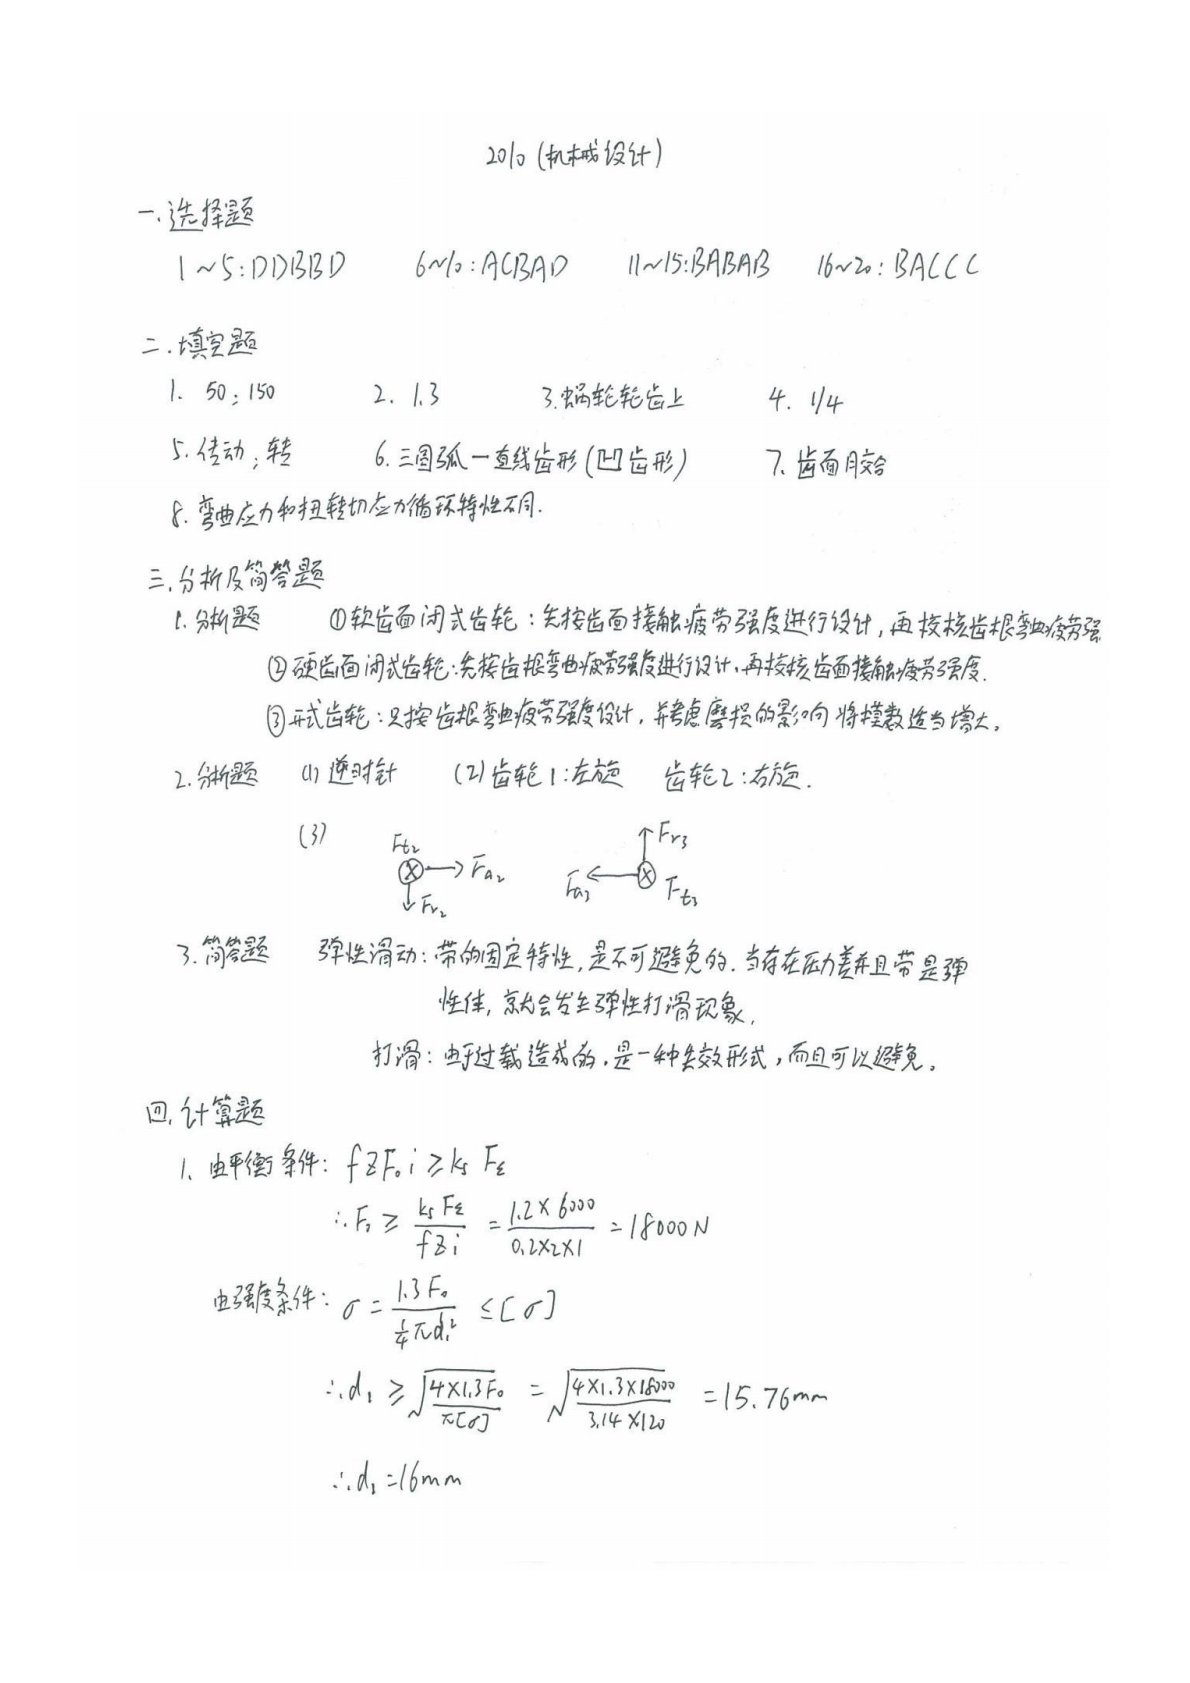 2010 (机械设计)
一.选择题
1~5:DDBBD 6~10:ACBAD 11~15:BABAB 16~20:BACCC
二.填空题
1. 50;150 2. 1.3 3.蜗轮轮齿上 4. 1/4
5.传动;转 6.三圆弧一直线齿形(凹齿形) 7.齿面胶合
8.弯曲应力和扭转切应力循环特性不同.
三.分析及简答题
1.分析题 ①软齿面闭式齿轮:先按齿面接触疲劳强度进行设计,再校核齿根弯曲疲劳强
②硬齿面闭式齿轮:先按齿根弯曲疲劳强度进行设计,再校核齿面接触疲劳强度.
③开式齿轮:只按齿根弯曲疲劳强度设计,并考虑磨损的影响将模数适当增大。
2.分析题 (1)逆时针 (2)齿轮1:左旋 齿轮2:右旋.
(3) Ft2 Fa2 Fr2 Fr3 Fa3 Ft3
3.简答题 弹性滑动:带的固定特性,是不可避免的.当存在压力差并且带是弹
性体,就会发生弹性打滑现象.
打滑:由于过载造成的.是一种失效形式,而且可以避免。
四.计算题
1. 由平衡条件: fZF₀i ≥ ks FΣ
∴F₀ ≥ ks FΣ / fZi = 1.2×6000 / 0.2×2×1 = 18000N
由强度条件: σ = 1.3F₀ / ¼πd₁² ≤ [σ]
∴d₁ ≥ √(4×1.3F₀ / π[σ]) = √(4×1.3×18000 / 3.14×120) = 15.76mm
∴d₁=16mm